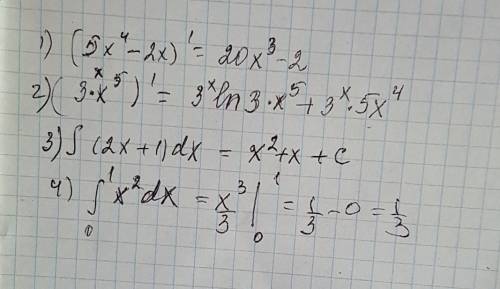 1) (5x⁴-2x)' = 20x³-2
2) (3ˣ·x⁵)' = 3ˣln3·x⁵+3ˣ·5x⁴
3) ∫(2x+1)dx = x²+x+C
4) ∫₀¹x²dx = x³/3|₀¹ = 1/3-0 = 1/3